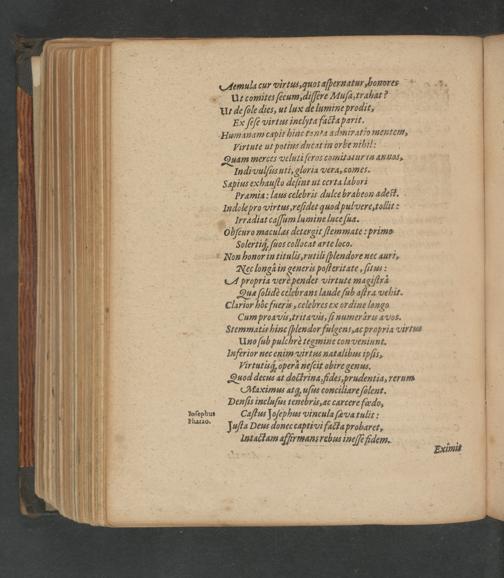 Aemula cur virtus, quos aspernatur, honores
Ut comites secum, dissere Musa, trahat?
Ut de sole dies, ut lux de lumine prodit,
Ex sese virtus inclyta facta parit.
Humanam capit hinc tanta admiratio mentem,
Virtute ut potius ducat in orbe nihil:
Quam merces veluti seros comitatur in annos,
Indivulsus uti, gloria vera, comes.
Sæpius exhausto desint ut certa labori
Præmia: laus celebris dulce brabeon adest.
Indole pro virtus, residet quod pulvere, tollit:
Irradiat cassum lumine luce sua.
Obscuro maculas detergit stemmate: primo
Solertiq́, suos collocat arte loco.
Non honor in titulis, rutili splendore nec auri,
Nec longâ in generis posteritate, situs:
A propria verè pendet virtute magistrâ
Quæ solidè celebrans laude sub astra vehit.
Clarior hôc fueris, celebres ex ordine longo
Cum proavis, tritavis, si numerâris avos.
Stemmatis hinc splendor fulgens, ac propria virtus
Uno sub pulchrè tegmine conveniunt.
Inferior nec enim virtus natalibus ipsis,
Virtutisq́, operâ nescit obire genus.
Quod decus at doctrina, fides, prudentia, rerum
Maximus atq́, usus conciliare solent.
Densis inclusus tenebris, ac carcere fœdo,
Iosephus
Pharao.
Castus Josephus vincula sæva tulit:
Justa Deus donec captivi facta probaret,
Intactam affirmans rebus inesse fidem.
Eximie